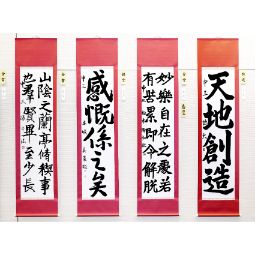 天地創造
妙樂自在之處若
有諸累即今解脫
感慨係之矣
山陰之蘭亭脩稧事
也羣賢畢至少長